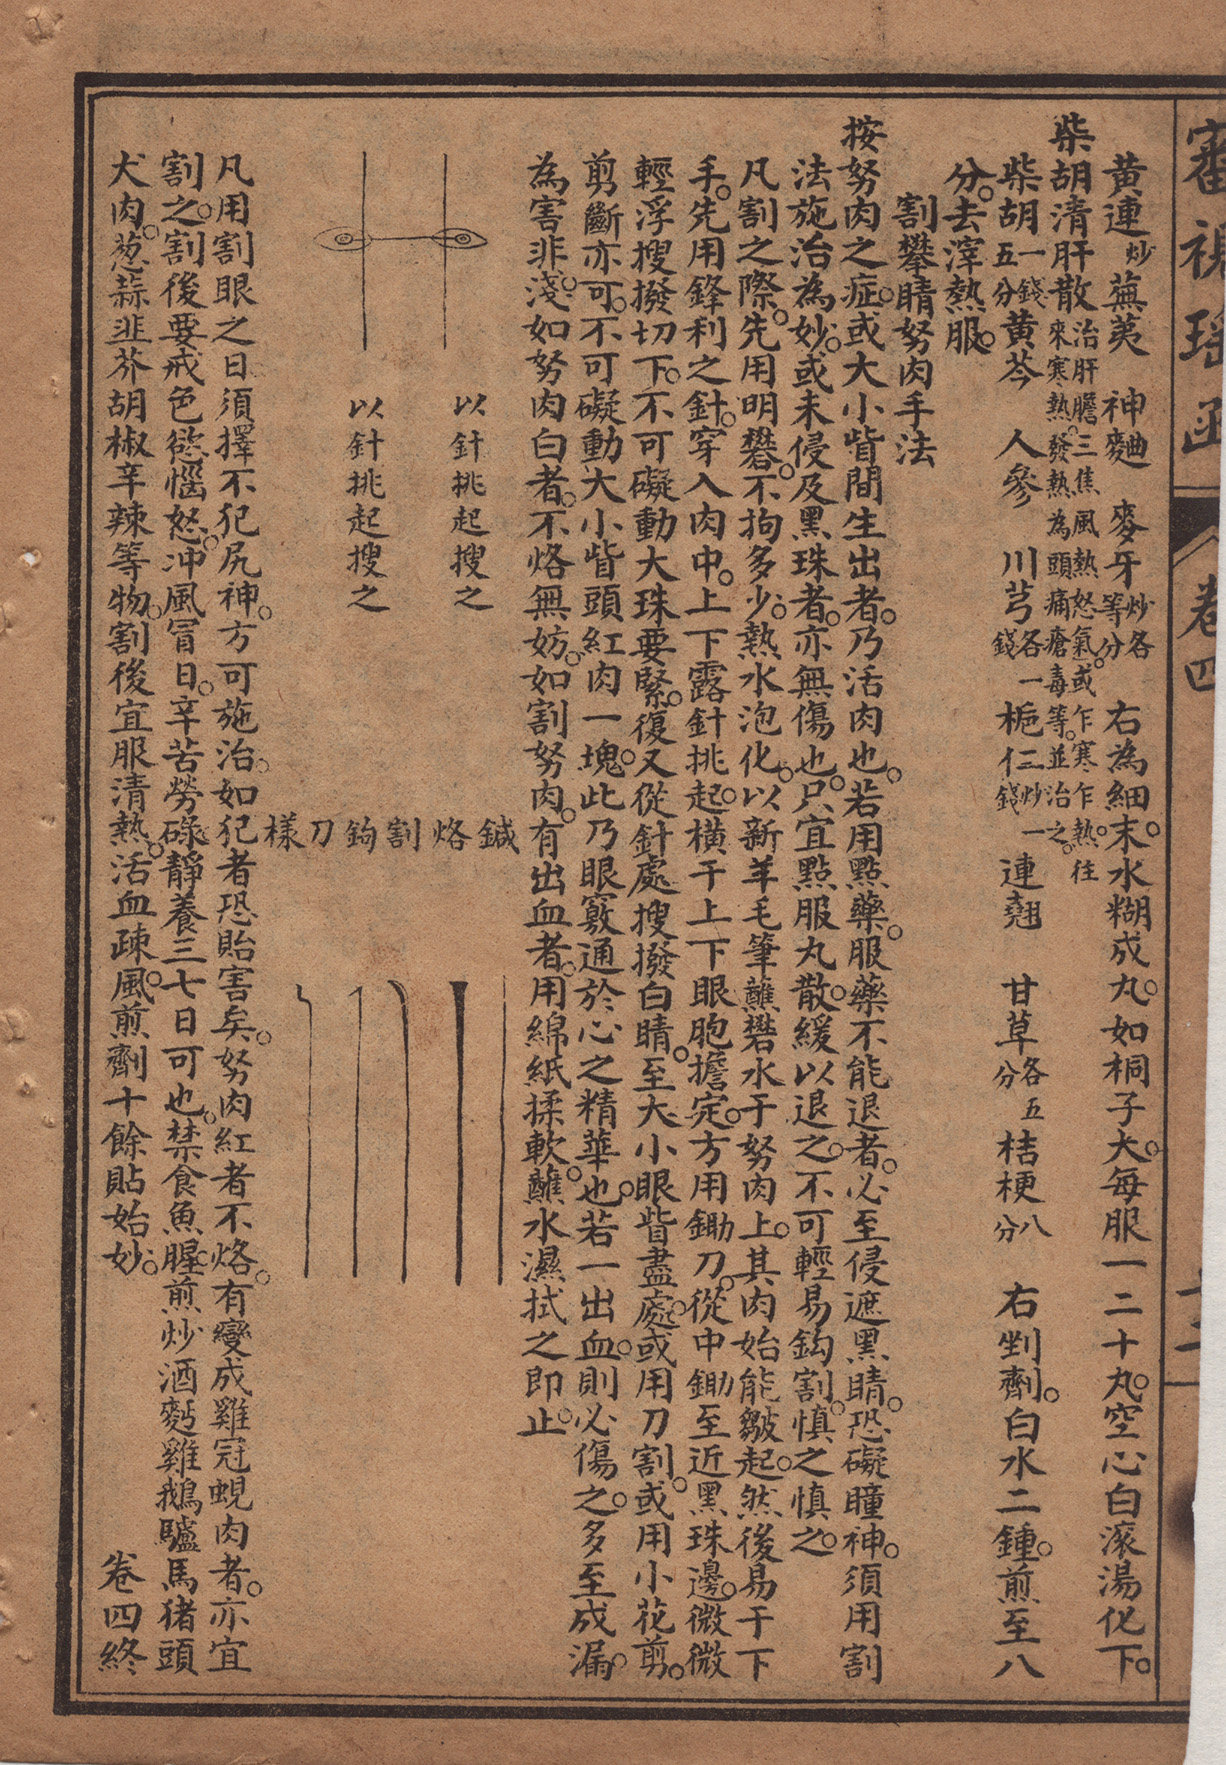 審視瑤函 卷四
黃連炒蕪荑 神麯 麥牙炒各等分 右為細末。水糊成丸。如桐子大。每服一二十丸。空心白滾湯化下。
柴胡清肝散治肝膽三焦風熱怒氣。或乍寒乍熱。往來寒熱。發熱為頭痛瘡毒等。並治之。
柴胡一錢五分黃芩 人參 川芎各一錢梔仁炒一錢三 連翹 甘草各五分 桔梗八分 右剉劑。白水二鍾。煎至八
分。去滓熱服。
割攀睛努肉手法
按努肉之症。或大小眥間生出者。乃活肉也。若用點藥。服藥不能退者。必至侵遮黑睛。恐礙瞳神。須用割
法施治為妙。或未侵及黑珠者。亦無傷也。只宜點服丸散。緩以退之。不可輕易鈎割。慎之慎之。
凡割之際。先用明礬。不拘多少。熱水泡化。以新羊毛筆蘸礬水于努肉上。其肉始能皺起。然後易于下
手。先用鋒利之針。穿入肉中。上下露針挑起。橫于上下眼胞擔定。方用鋤刀。從中鋤至近黑珠邊。微微
輕浮搜撥切下。不可礙動大珠要緊。復又從針處搜撥白睛。至大小眼眥盡處。或用刀割。或用小花剪。
剪斷亦可。不可礙動大小眥頭紅肉一塊。此乃眼竅通於心之精華也。若一出血。則必傷之。多至成漏。
為害非淺。如努肉白者。不烙無妨。如割努肉。有出血者。用綿紙揉軟。蘸水濕拭之即止。
以針挑起搜之
以針挑起搜之
鍼烙割鈎刀樣
凡用割眼之日。須擇不犯尻神。方可施治。如犯者恐貽害矣。努肉紅者不烙。有變成雞冠蜆肉者。亦宜
割之。割後要戒色慾惱怒。沖風冒日。辛苦勞碌。靜養三七日可也。禁食魚腥煎炒酒麪雞鵝驢馬猪頭
犬肉。葱蒜韭芥胡椒辛辣等物。割後宜服清熱。活血疎風。煎劑十餘貼始妙。 卷四終